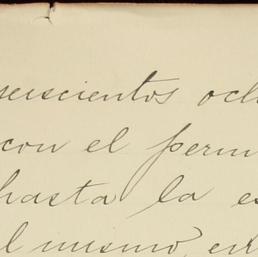 seiscientos och
con el perm
hasta la es
l mismo, en